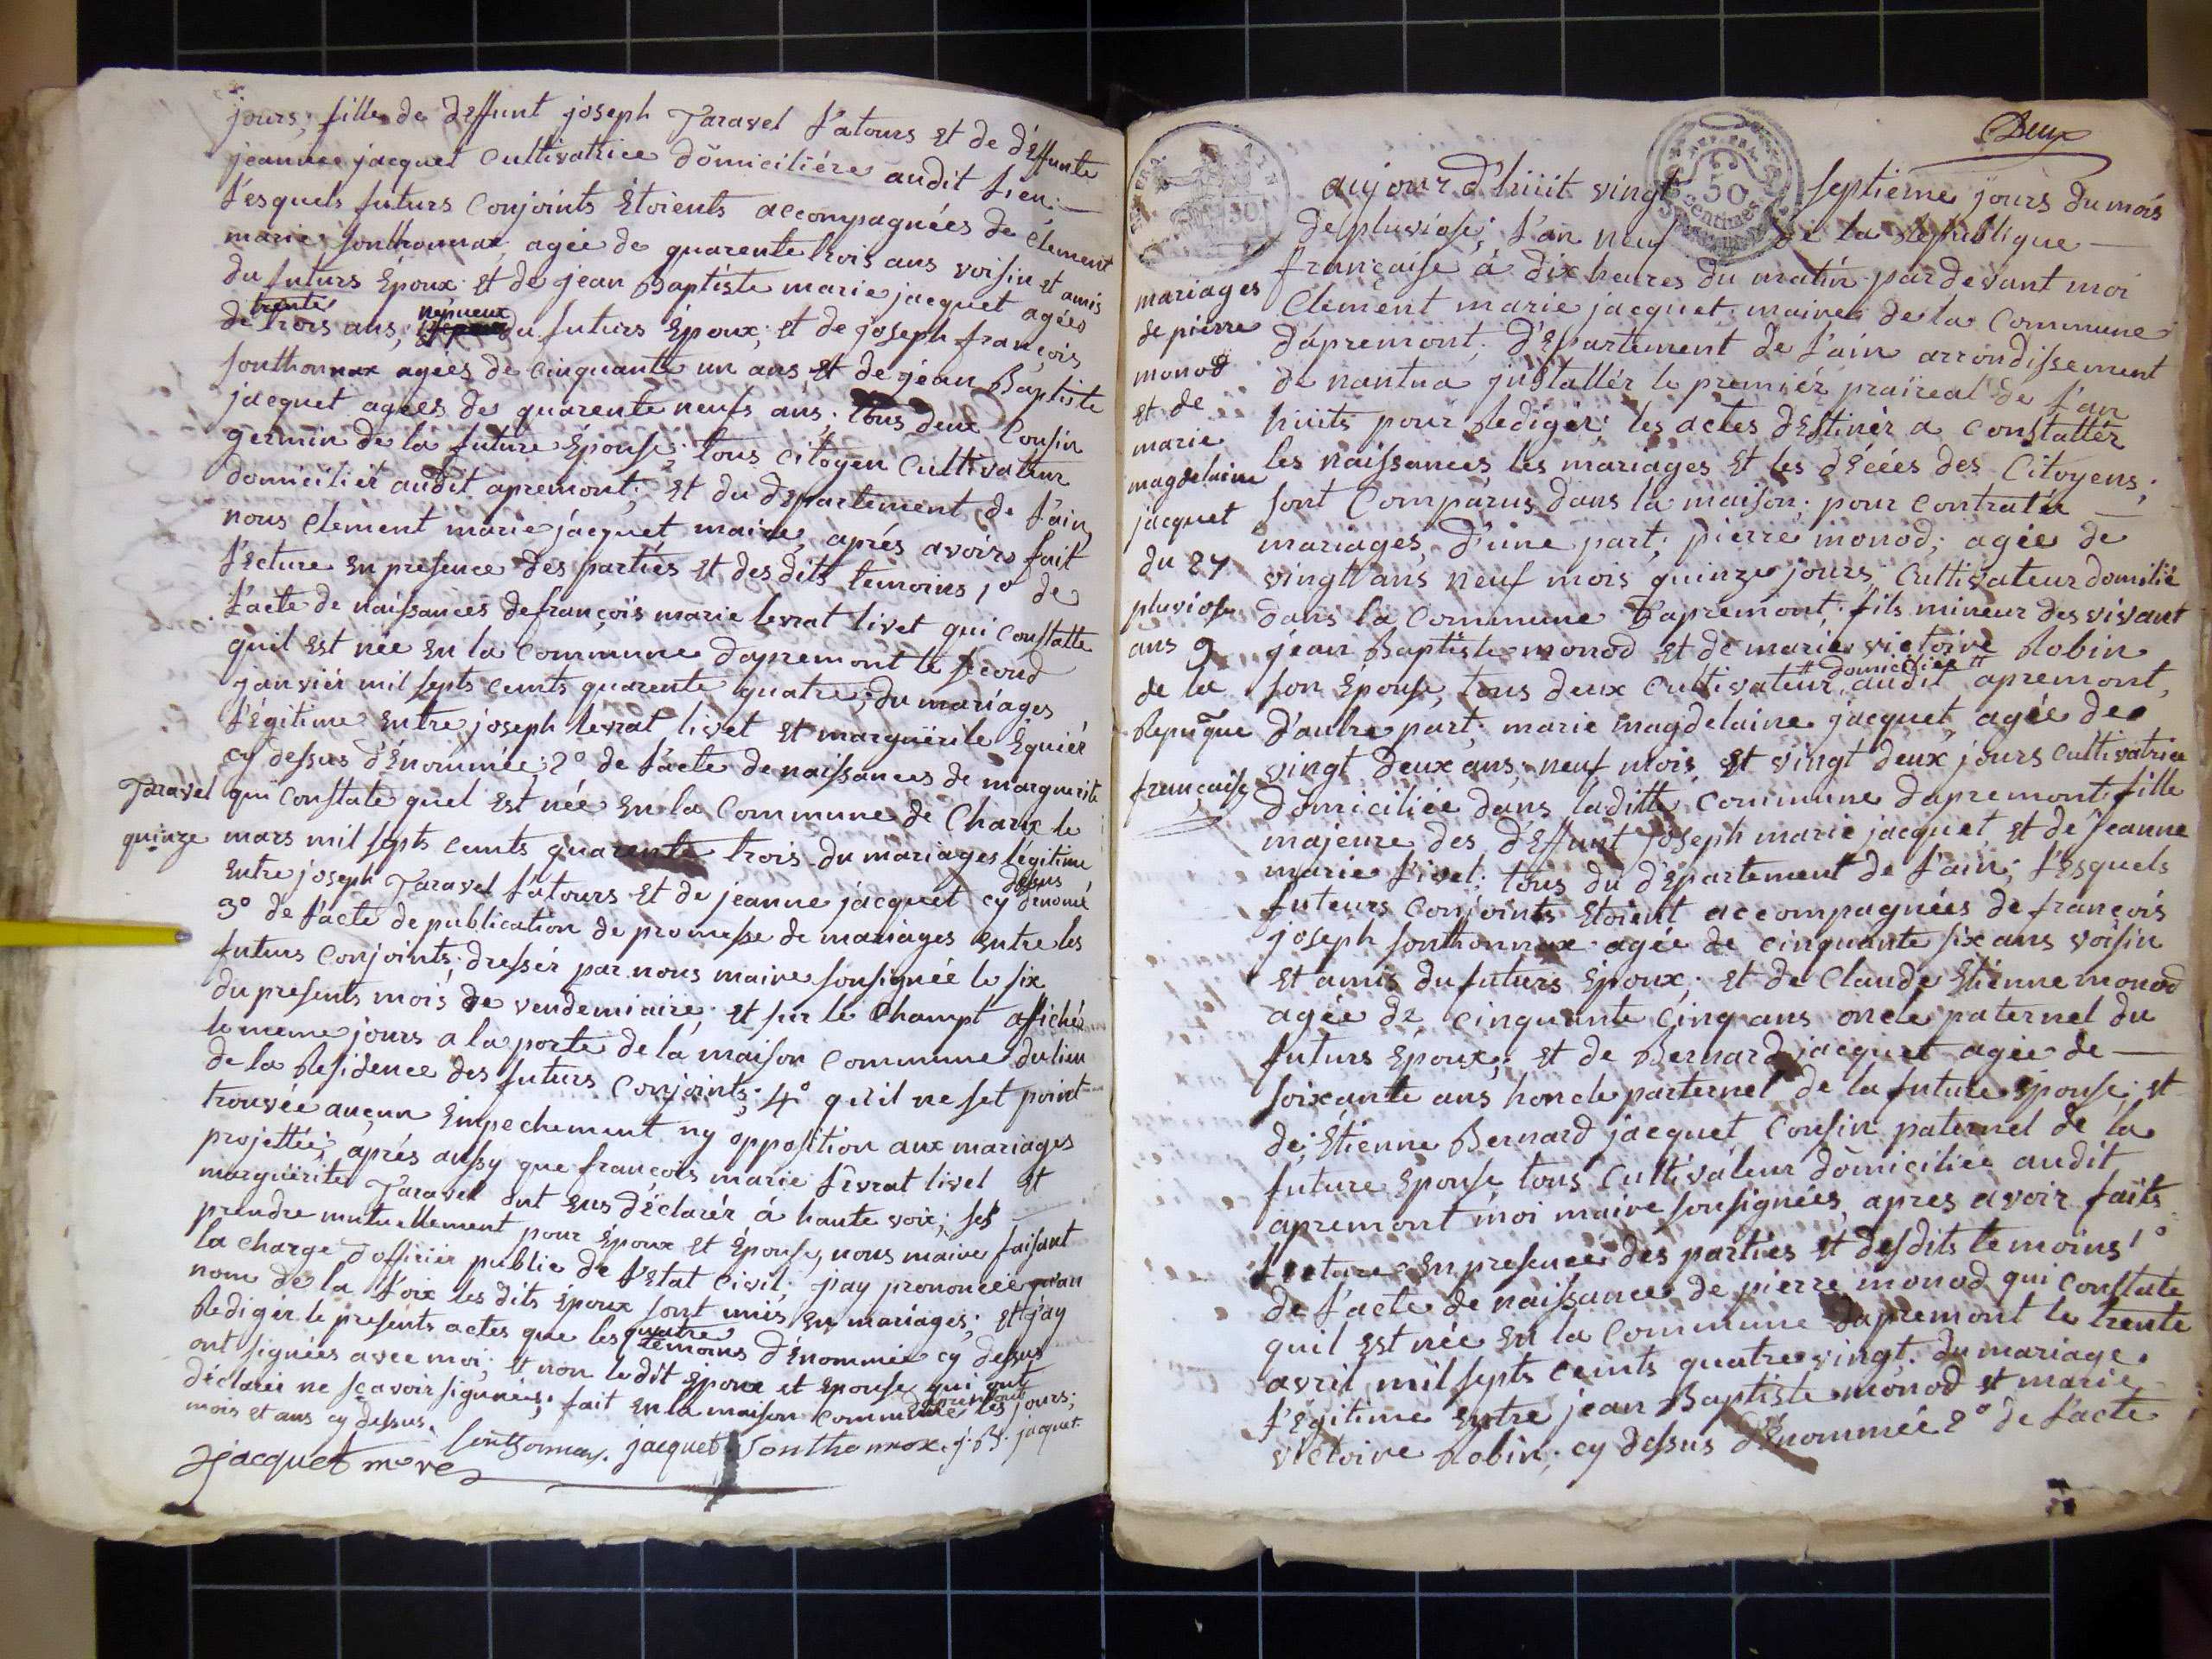 jours; fille de deffunt joseph Taravel Latours et de déffunte
jeanne jacquet cultivatrice domiciliére audit Lieu;
Lesquels futurs Conjoints Etoients accompagnées de Clement
marie sonthonnax, agée de quarente trois ans voisin et amis
du futurs Epoux et de jean Baptiste marie jacquet agées
de trente trois ans, népueux du futurs Epoux; et de joseph françois
sonthonnax agées de cinquante un ans et de jéan Baptiste
jacquet agées de quarente neufs ans; tous deux Cousin
germin de la future Epouse; tous citoyen Cultivateur
domiciliér audit apremont; et du departement de L'ain,
nous clement marie jacquet maire, aprés avoirs fait
Lecture en presence des parties et des dits temoins 1° de
L'acte de naissances de françois marie levrat livet qui Constatte
quil est née en la Commune dapremont le second
janviér mil septs cents quarente quatre; du mariages
Légitime entre joseph levrat livet et margueritte Eguiér
cy dessus dénommée; 2° de l'acte de naissances de marguerite
Taravel qui Constate quel est née en la Commune de Charix le
quinze mars mil septs cents quarente trois du mariages légitime
entre joseph Taravel Latours et de jeanne jacquet cy dessus denomé
3° de l'acte de publication de promesse de mariages entre les
futurs Conjoints; dressér par nous maire sousignée le six
du presents mois de vendemiaire; et sur le Champt affiché
le meme jours a la porte de la maison Commune du lieu
de la Residence des futurs Conjoints; 4° qu'il ne set point
trouvée aucun Empechement ny opposition aux mariages
projettée; aprés aussy que françois marie Levrat livet et
marguérite Taravel ont eus déclarér á haute voix; ses
prendre mutuellement pour Epoux et Epouse, nous maire faisant
la charge d'officiér public de l'Etat Civil; j'ay prononcée qu'au
nom de la Loix les dits Epoux sont unis en mariages; et j'ay
Redigér le presents actes que les quatre témoins dénommée cy dessus
ont signées avec moi; et non le dit Epoux et Epouse qui ont
déclarée ne sçavoir signées; fait en la maison Commune les jours;
mois et ans cy dessus.
Sonthonnax. jacquet Sonthonnax. j. B. jacquet
jacquet m re
Deux
50
centimes
aujourd'huit vingt septième jours du mois
de pluviose; l'an neuf de la Republique
française á dix heures du matin pardevant moi
Clement marie jacquet maire de la Commune
dapremont; département de L'ain arrondissement
de nantua jnstallér le premiér praïreal de l'an
huits pour Redigér; les actes destinér a Constattér
les naissances les mariages et les décées des Citoyens;
sont Comparus dans la maison; pour Contratér
mariages, d'une part; pierre monod; agée de
vingt ans neuf mois quinze jours, Cultivateur domilié
dans la Commune dapremont, fils mineur des vivant
jéan Baptiste monod et de marie victoire Robin
son Epouse; tous deux Cultivateur domiciliér audit apremont,
D'autre part; marie magdelaine jacquet, agée de
vingt deux ans; neuf mois et vingt deux jours Cultivatrice
domiciliée dans laditte Commune dapremont fille
majeure des deffunt joseph marie jacquet et de jeanne
marie Livet; tous du département de L'ain; Lesquels
futeurs Conjoints Etoient accompagnées de françois
joseph sonthonnax agée de cinquante six ans voisin
et amis du futurs Epoux; et de Claude Etienne monod
agée de cinquante cinq ans oncle paternel du
futurs Epoux; et de Bernard jacquet agée de
soixante ans honcle parternel de la future Epouse; et
de; Etienne Bernard jacquet Cousin paternel de la
future Epouse tous Cultivateur domiciliée audit
apremont moi maire sousignées, apres avoir faits
Lecture en presence des parties et desdits temoins 1°
de l'acte de naissance de pierre monod qui Constate
quil est née en la Commune dapremont le trente
avril mil septs cents quatre vingt. du mariage
Légitime entre jean Baptiste monod et marie
victoire Robin; cy dessus dénommée 2° de l'acte
mariages
de pierre
monod
et de
marie
magdelaine
jacquet
du 27
pluviose
ans 9
de la
Repuque
française